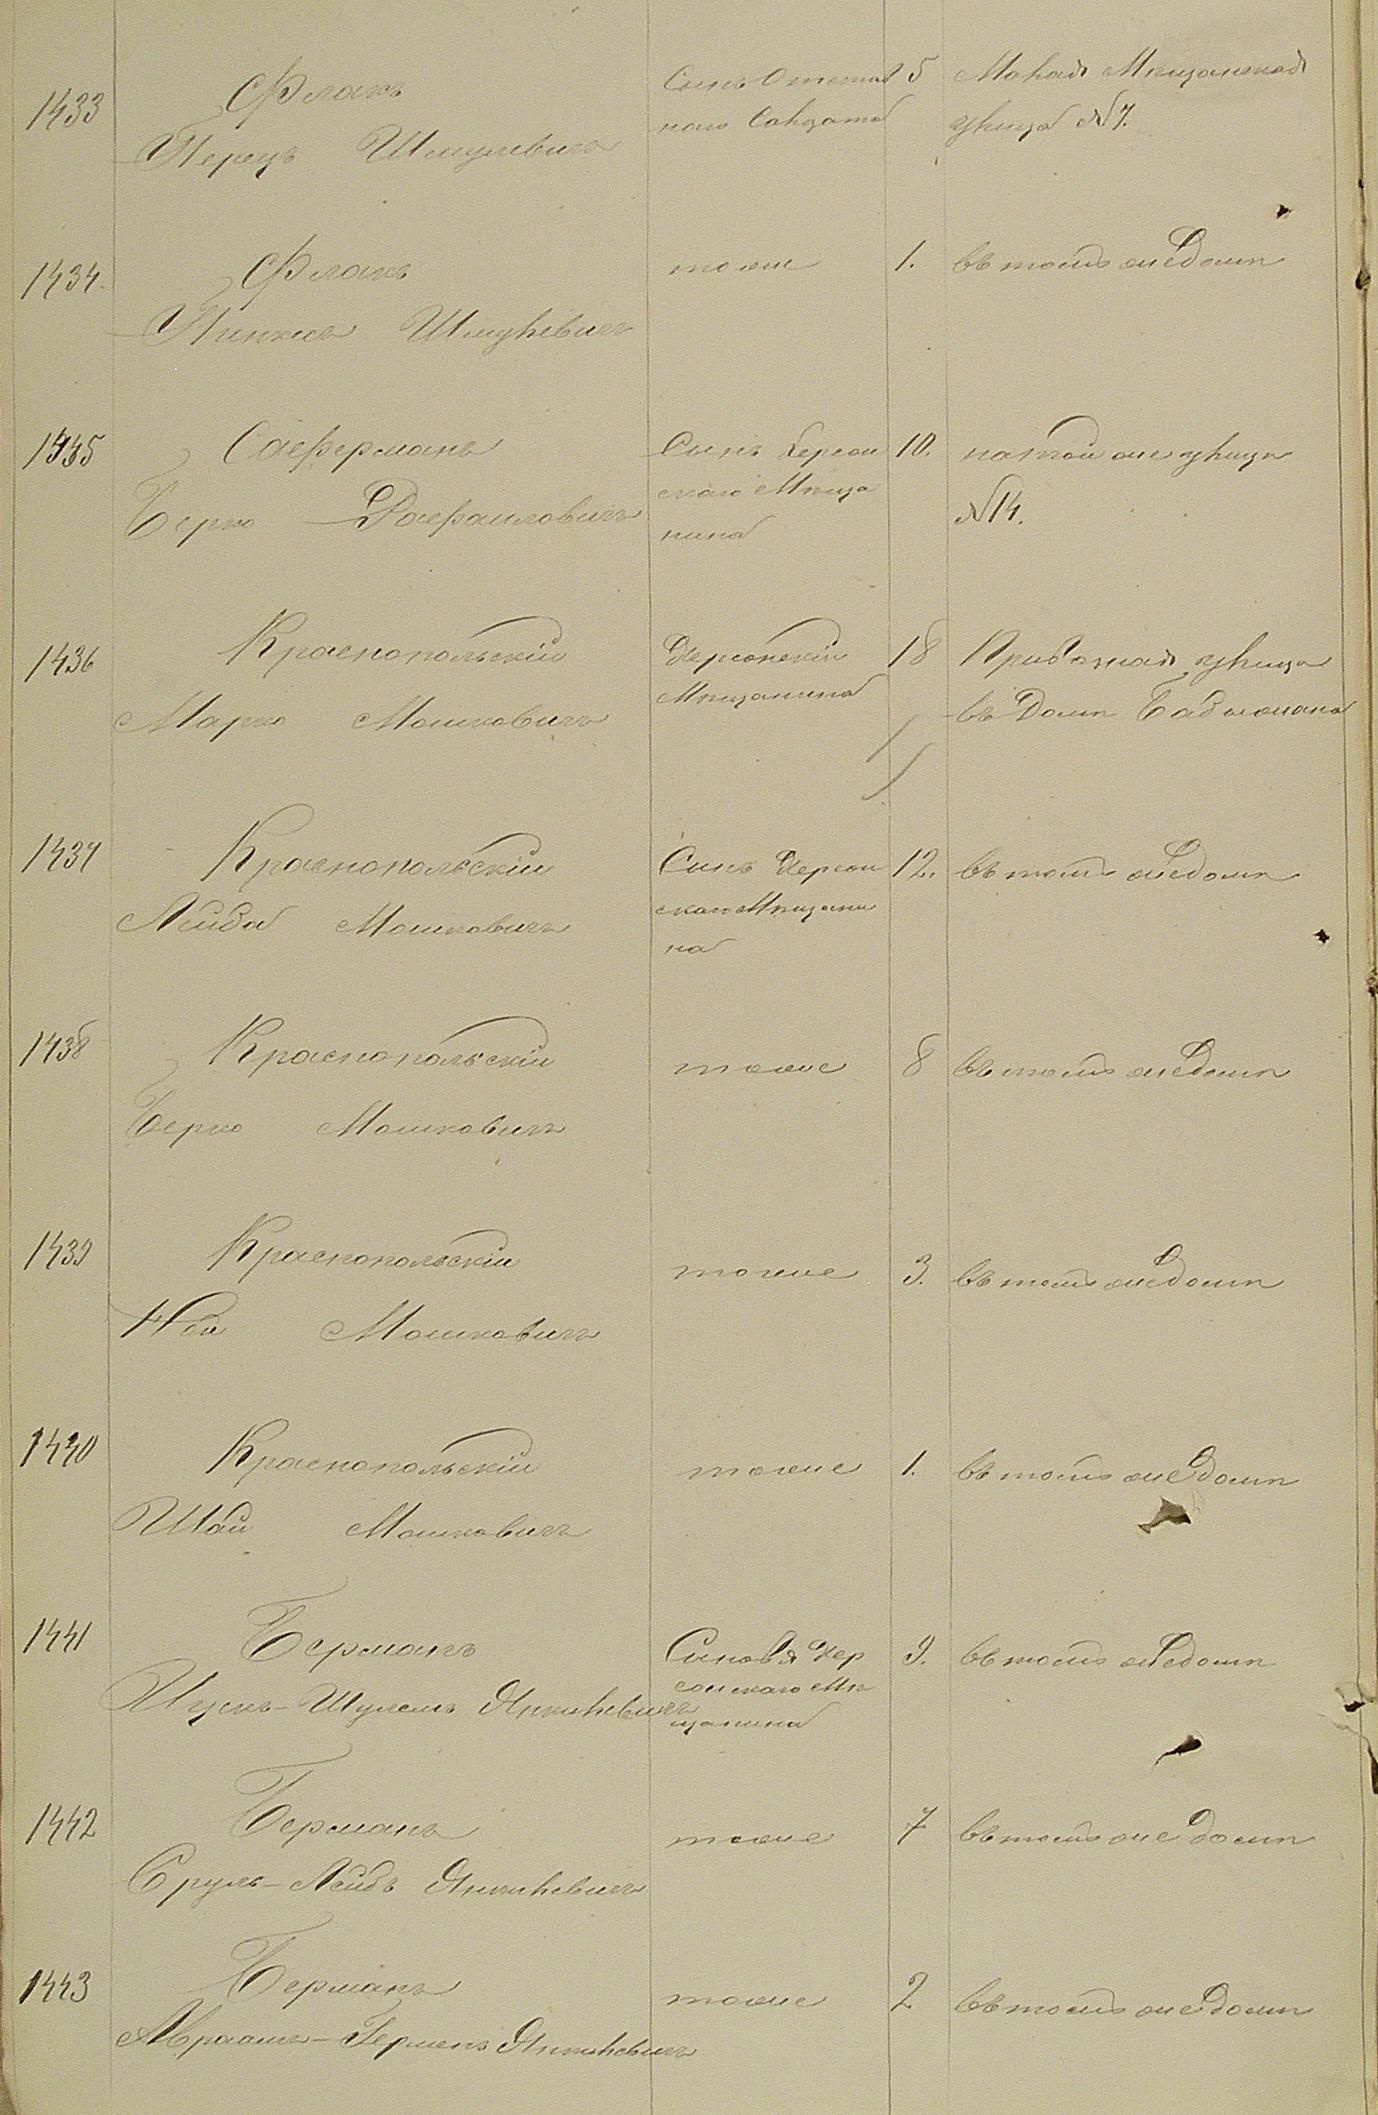 1433
Флакъ
Перецъ Шмулевичъ
Сынъ Отстав
наго Солдата
5
Малая Мѣщанская
улица №7.
1434.
Флакъ
Пинхасъ Шмулевичъ
тоже
1.
въ томъ же домѣ
1435
Саферманъ
Берко Рафаиловичъ
Сынъ Херсон
скаго Мѣща
нина
10.
на той же улицѣ
№14.
1436
Краснопольскій
Марко Мошковичъ
Херсонскій
Мѣщанинъ
18
улица
въ домѣ
1437
Краснопольскій
Лейба Мошковичъ
Сынъ Херсон
скаго Мѣщани
на
12.
въ томъ же домѣ
1438
Краснопольскій
Берко Мошковичъ
тоже
8
въ томъ же домѣ
1439
Краснопольскій
Мошковичъ
тоже
3.
въ томъ же домѣ
1440
Краснопольскій
Мошковичъ
тоже
1.
въ томъ же домѣ
1441
Берманъ
Шулемъ Янкилевичъ
Сыновья Хер
сонскаго Мѣ
щанина
9.
въ томъ же домѣ
1442
Берманъ
Сруль-Лейбъ Янкилевичъ
тоже
7
въ томъ же домѣ
1443
Берманъ
Авраамъ- Янкилевичъ
тоже
2
въ томъ же домѣ